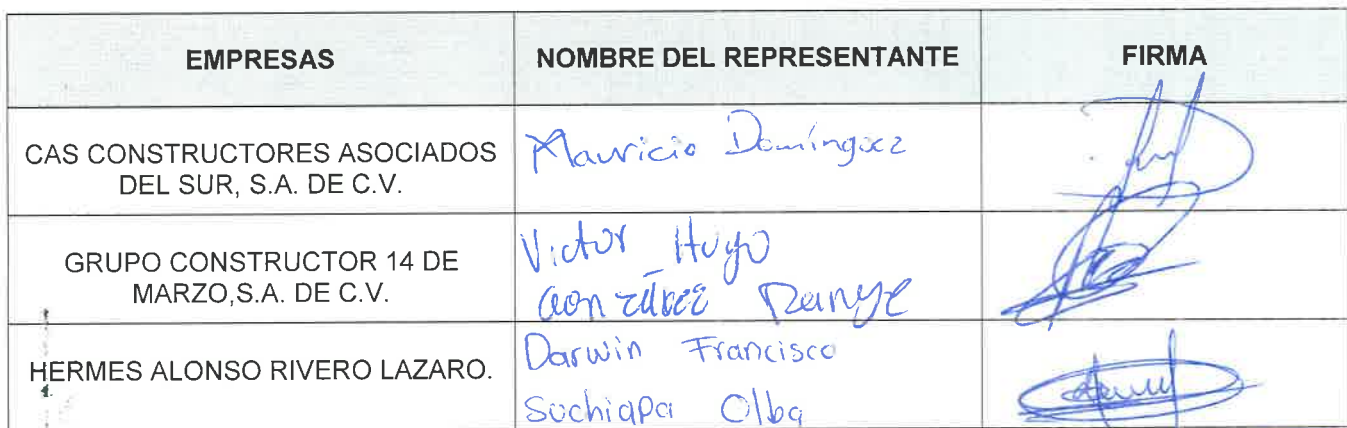 EMPRESAS NOMBRE DEL REPRESENTANTE FIRMA
CAS CONSTRUCTORES ASOCIADOS
DEL SUR, S.A. DE C.V.
Mauricio Domínguez
GRUPO CONSTRUCTOR 14 DE
MARZO,S.A. DE C.V.
Victor Hugo
González Rangel
HERMES ALONSO RIVERO LAZARO.
Darwin Francisco
Suchiapa Olba